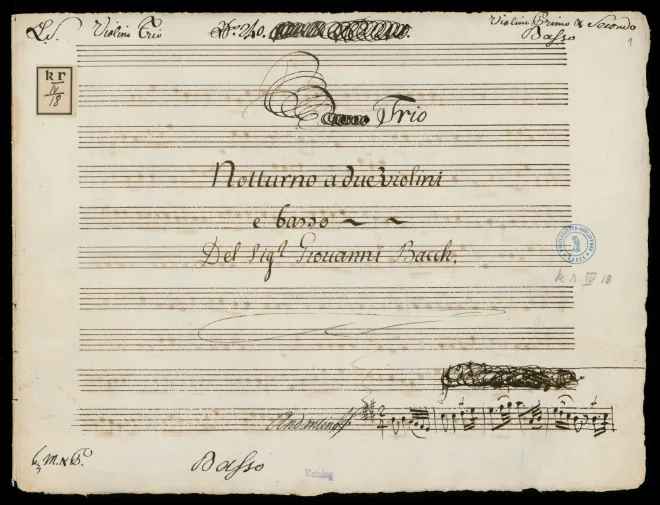 Violino Trio
Violino Primo & Secondo
Basso
1
k r
IV
18
Trio
Notturno a due violini
e basso
Del Sigr. Giovanni Bacch.
k. r. IV 18
Andantino
Basso
Katalog